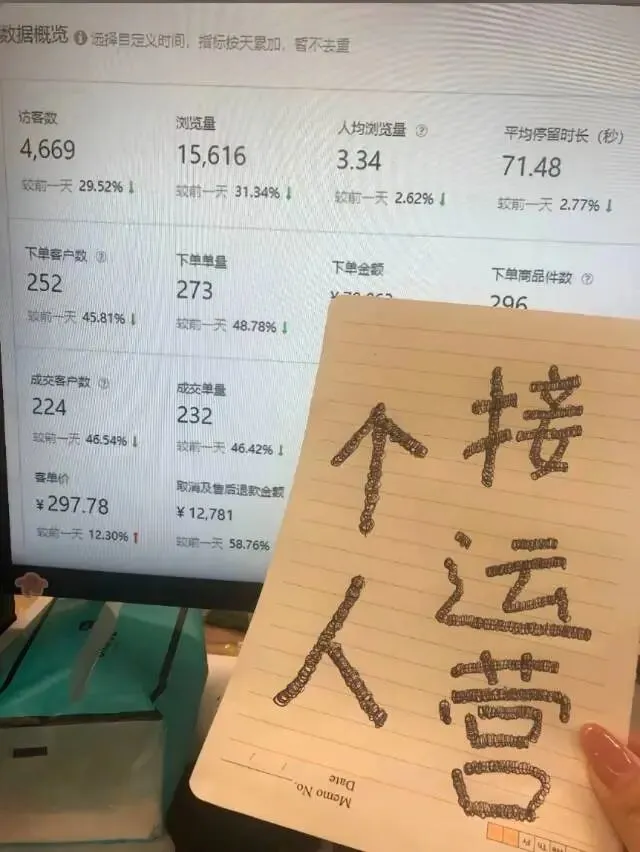 数据概览 选择自定义时间，指标按天累加，暂不去重
访客数 浏览量 人均浏览量 ? 平均停留时长（秒）
4,669 15,616 3.34 71.48
较前一天 29.52% ↓ 较前一天 31.34% ↓ 较前一天 2.62% ↓ 较前一天 2.77% ↓
下单客户数 ? 下单单量 下单金额 下单商品件数 ?
252 273 296
较前一天 45.81% ↓ 较前一天 48.78% ↓
成交客户数 ? 成交单量
224 232
较前一天 46.54% ↓ 较前一天 46.42% ↓
客单价 取消及售后退款金额
¥297.78 ¥12,781
较前一天 12.30% ↑ 较前一天 58.76%
个人
接运营
Memo No.
Date